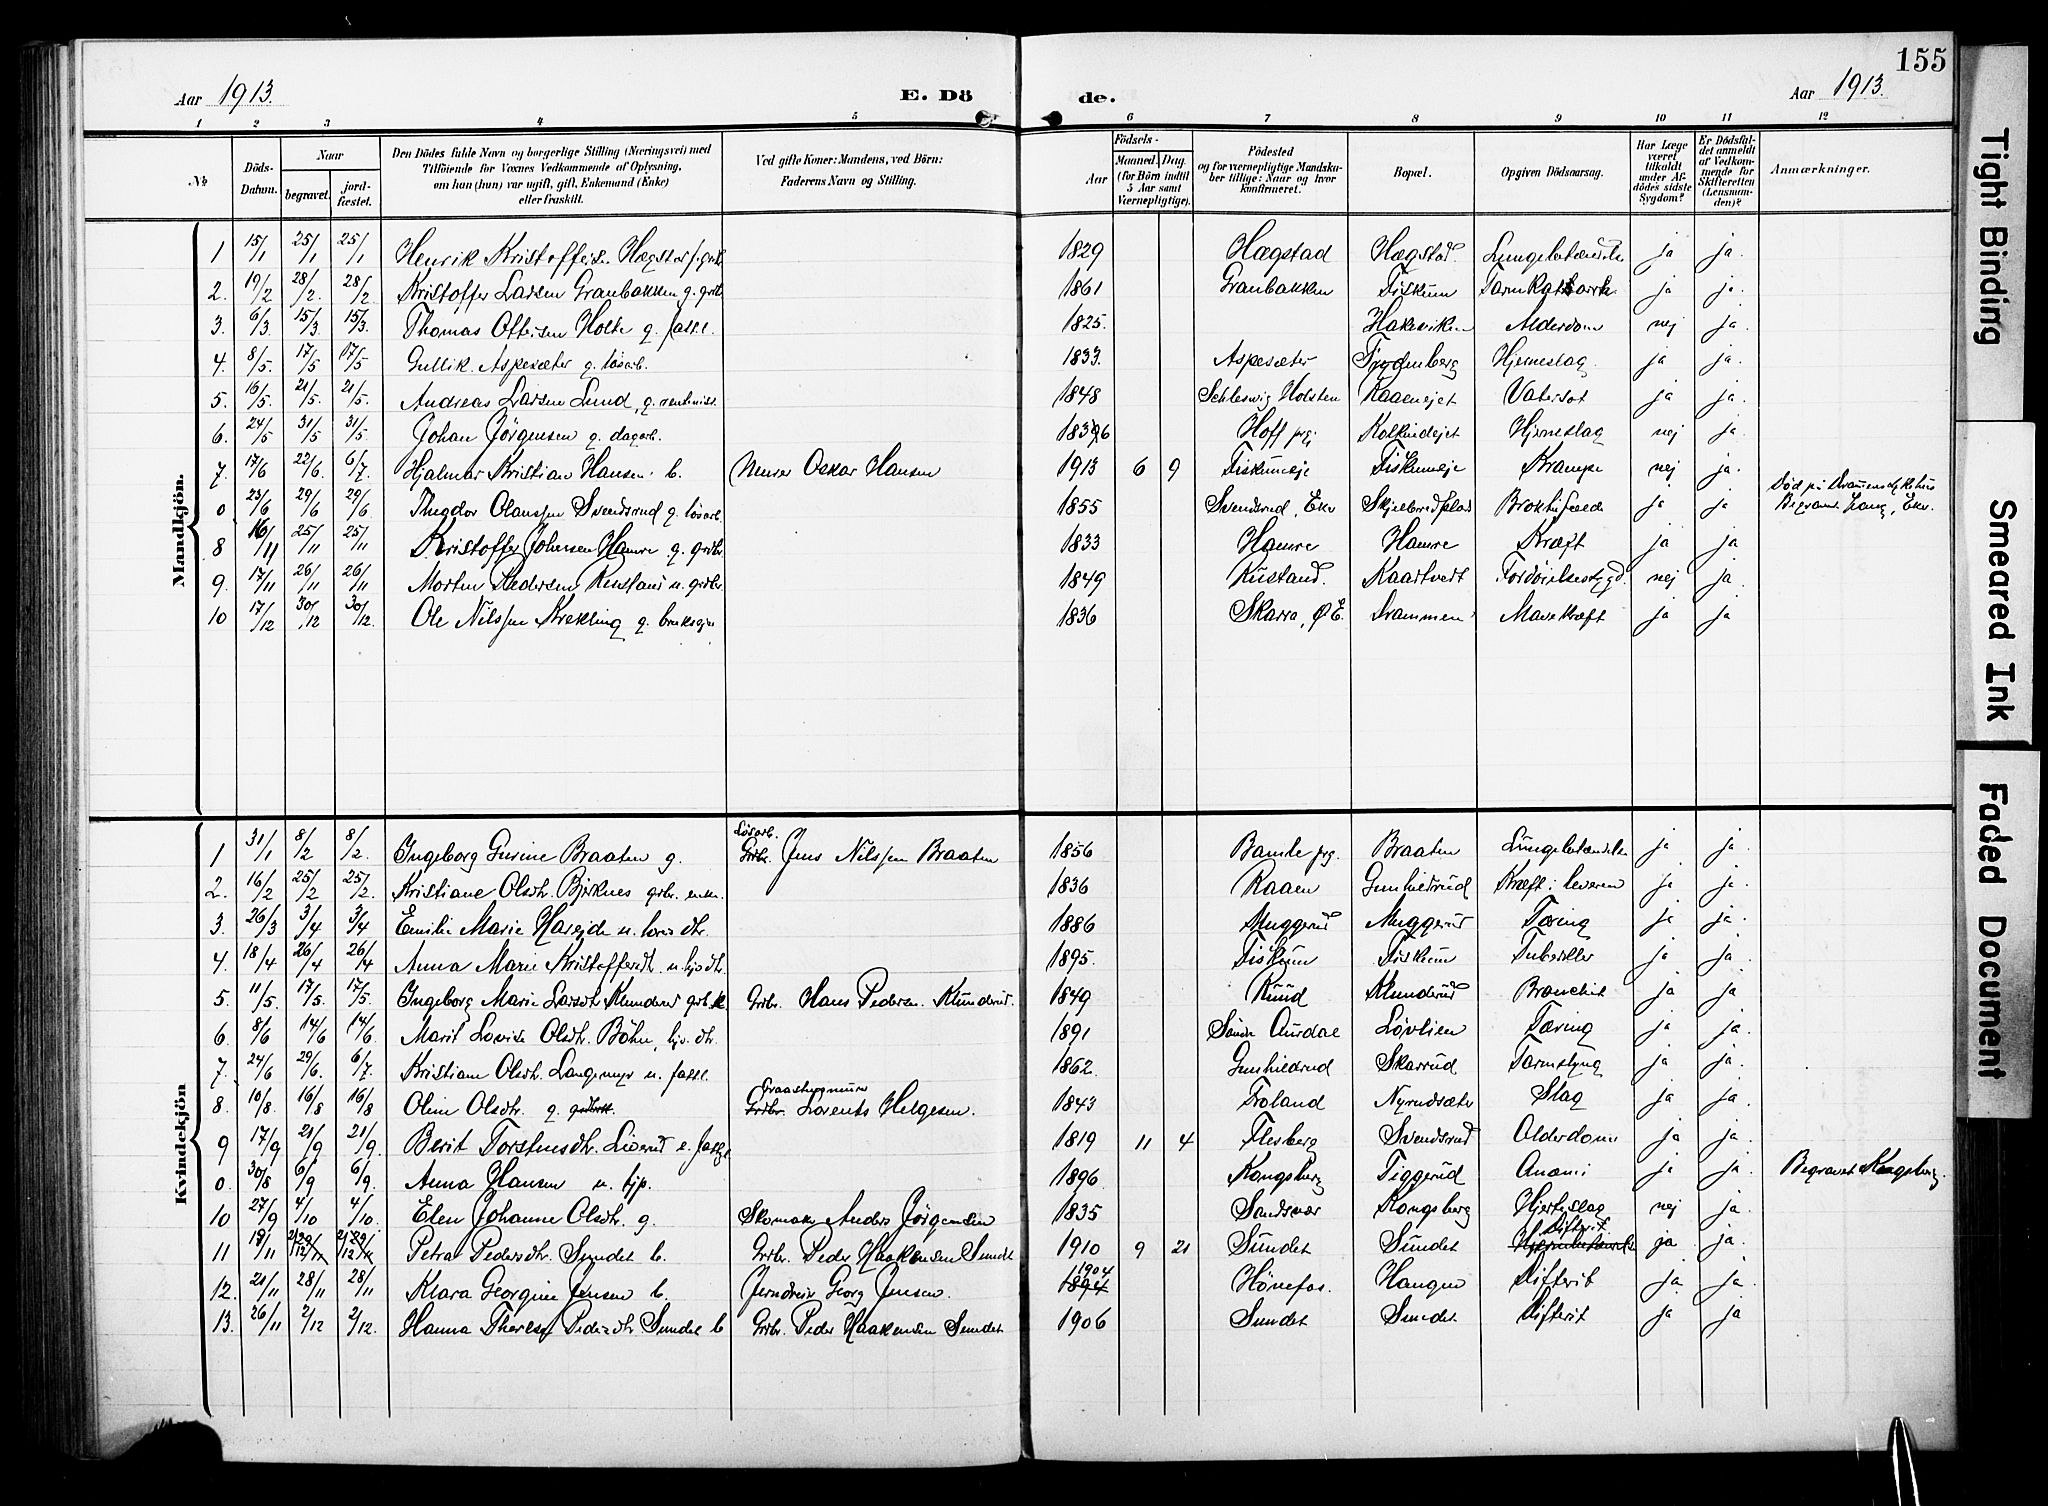 155
Aar 1913.
E. Dö
de.
Aar 1913.
1 2 3 4 5 6 7 8 9 10 11 12
No
Döds-Datum.
Naar
begravet.
jord-fæstet.
Den Dödes fulde Navn og borgerlige Stilling (Næringsvei) med
Tilföiende for Voxnes Vedkommende af Oplysning,
om han (hun) var ugift, gift, Enkemand (Enke)
eller fraskilt.
Ved gifte Koner: Mandens, ved Börn:
Faderens Navn og Stilling.
Födsels-
Aar
Maaned. Dag.
(for Börn indtil
5 Aar samt
Værnepligtige).
Födested
og for værnepligtige Mandsku-
ber tillige: Naar og hvor
konfirmeret.
Bopæl.
Opgiven Dödsaarsag.
Har Læge
været
tilkaldt
under Af-
dödes sidste
Sygdom?
Er Dödsfal-
det anmeldt
af Vedkom-
mende for
Skifteretten
(Lensman-
den)?
Anmærkninger.
Mandkjön.
1 15/1 25/1 25/1 Henrik Kristoffers. Hægstad 1829 Hægstad Hægstad Lungebetændelse ja ja.
2. 19/2 28/2. 28/2 Kristoffer Larsen Granbakken g. grbr. 1861 Granbakken Fiskum Tarmkatarrh. ja ja.
3. 6/3 15/3. 15/3. Thomas Ottersen Holte g. fattl. 1825. Hakaviken Alderdom nej ja.
4. 8/5. 17/5 17/5 Gullik Aspesæter g. løsarb. 1833. Aspesæter Frydenberg Hjerneslag. ja ja.
5. 16/5. 21/5. 21/5. Andreas Larsen Lund, g. rentenist 1848 Schleswig Holsten Raaenejet Vatersot ja ja.
6. 24/5 31/5 31/5 Johan Jörgensen g. dagarb. 1836 Hoff prgj. Kolkindejet Hjerneslag nej ja.
7. 17/6 22/6. 6/7. Hjalmar Kristian Hansen b. Murer Oskar Hansen 1913 6 9 Fiskumeje Fiskumeje Krampe nej ja.
0 23/6 29/6 29/6. Theodor Olanssen Svendsrud g. løsarb. 1855 Svendsrud, Eker Skjelbredplads ja ja Begravet Haug, Eker.
8 16/11 25/11 25/11 Kristoffer Johnsen Hamre g. grdbr. 1833 Hamre Hamre Kræft ja ja
9. 17/11 26/11 26/11 Morten Pedersen Rustand u. grdbr. 1849 Rustand. Kaartvedt Fordöielsessygd. nej ja
10 17/12 30/12 30/12. Ole Nilssen Krekling g. brukseier 1836 Skarra, Ø E. Drammen Mavekræft ja ja
Kvindekjön
1 31/1 8/2 8/2. Ingeborg Gurine Braaten g. Løsarb. Grbr. Jens Nilssen Braaten 1856 Bamle prg. Braaten Lungebetændelse ja ja.
2. 16/2 25/2 25/2. Kristiane Olsdtr. Bjerknes grbr. enke. 1836 Raaen Gunhildrud Kræft i leveren ja ja.
3. 26/3 3/4 3/4 Emilie Marie u. 1886 Muggerud Muggerud Tæring ja ja.
4. 18/4 26/4 26/4 Anna Marie Kristoffersdtr. u. hjv.dtr. 1895. Fiskum Fiskum ja ja.
5. 11/5. 17/5. 17/5. Ingeborg Marie Larsdtr Klunderud Grbr. Hans Pedersen Klunderud. 1849 Ruud Klunderud Bronchit ja ja.
6. 8/6 14/6 14/6. Marit Lovise Olsdtr. Böhn, hjv. dtr. 1891 Søndre Aurdal Løvlien Tæring ja ja.
7. 24/6 29/6. 6/7. Kristiane Olsdtr. Langemyr u. fattl. 1862. Gunhildrud Skarrud Tarmslyng ja ja.
8. 10/8. 16/8 16/8 Oline Olsdtr. g. Grdbr. Lorents Helgesen. 1843 Froland Nyrudsæter Slag ja ja.
9 17/9 21/9 21/9. Berit Torstensdtr. Liverud e. 1819 11 4 Flesberg Svendsrud Alderdom ja ja.
0. 30/8 6/9 6/9. Anna Hansen u. hjp. 1896 Kongsberg Tiggerud Anæmi ja ja. Begravet Kongsberg.
10 27/9 4/10 4/10. Elen Johanne Olsdtr. g. Skomaker Anders Jörgensen 1835 Sandsvær Kongsberg Hjerteslag nej ja.
11 19/11 2/12 2/12 Petra Pedersdtr. Sundet b. Grdbr. Peder Haakensen Sundet 1910 9 21 Sundet Sundet Difterit ja ja.
12. 21/11 28/11 28/11 Klara Georgine Jensen b. Georg Jensen. 1894 1904 Hönefos. Haugen Difterit ja ja.
13. 26/11 2/12 2/12. Hanna Therese Pedersdtr Sundet b Grdbr. Peder Haakensen Sundet 1906 Sundet Sundet Difterit ja ja
Tight Binding
Smeared Ink
Faded Document